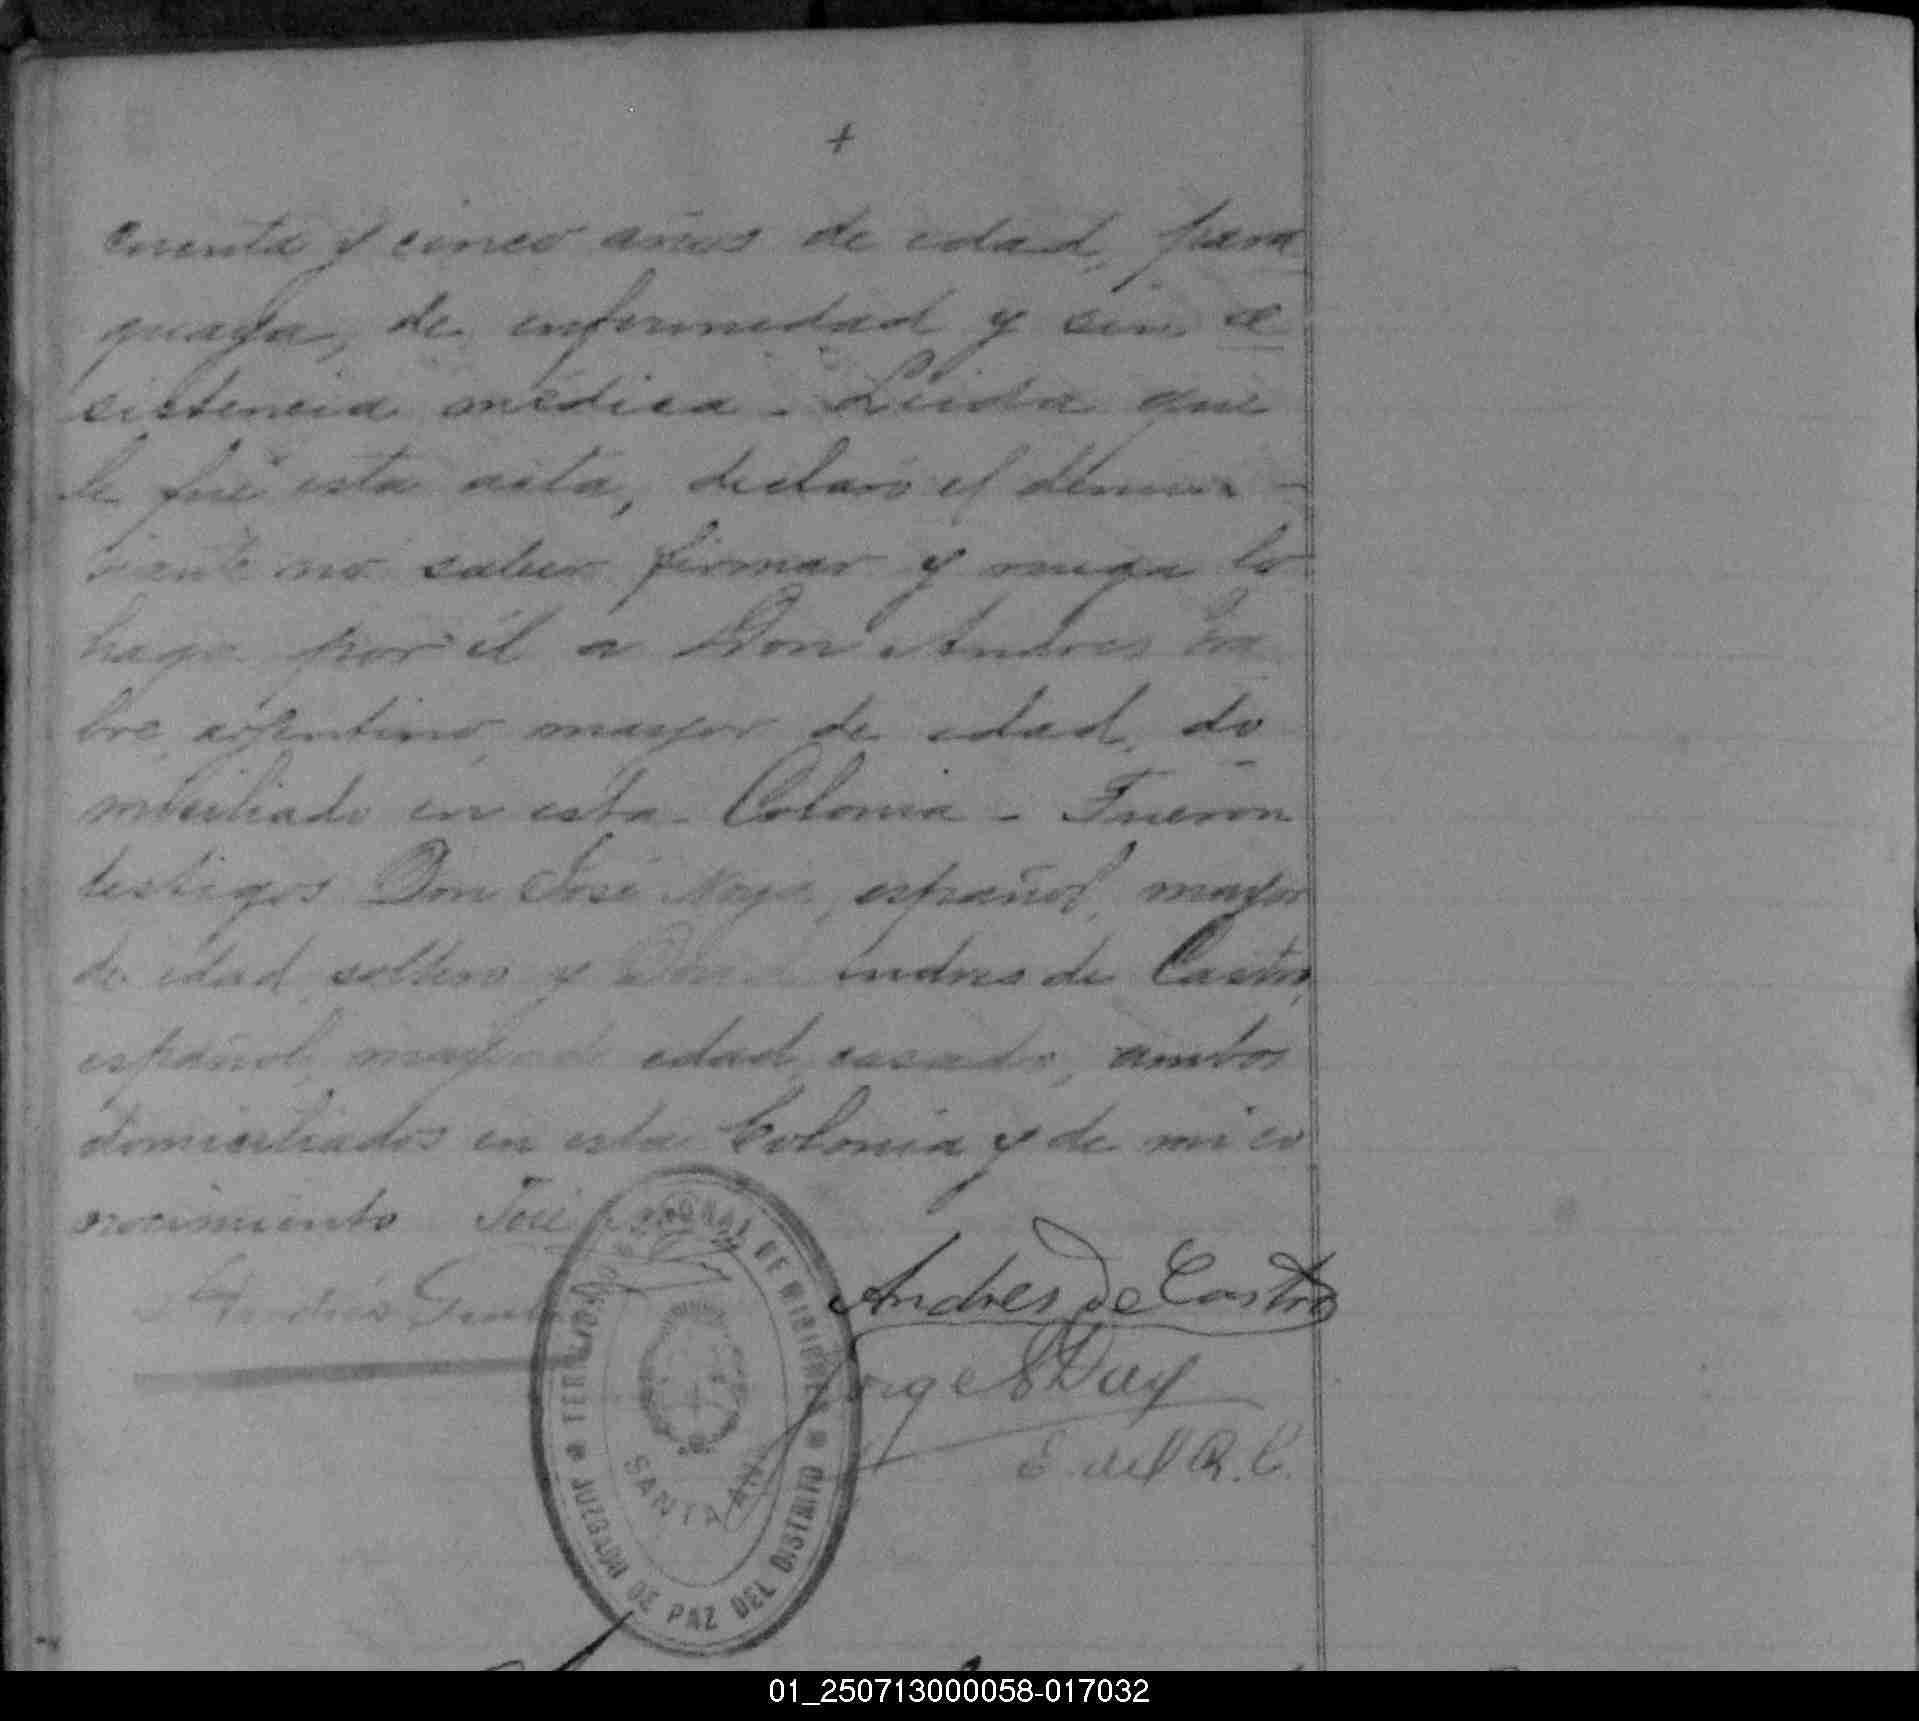 +
cuenta y cinco años de edad, para
guaya, de enfermedad y sin a
sistencia médica - Leida que
le fué esta acta, declaró el denun-
ciante no saber firmar y ruega lo
haga por él a Don Andres
bre, argentino, mayor de edad, do
miciliado en esta Colonia - Fueron
testigos Don José Moya, español, mayor
de edad, soltero y Don Andres de Castro,
español, mayor de edad, casado, ambos
domiciliados en esta Colonia y de mi co
nocimiento José
Andrés
Andres de Castro
Jorge
E. del R. C.
TERRITORIO NACIONAL DE MISIONES
JUZGADO DE PAZ DEL DISTRITO
SANTA ANA
01_250713000058-017032